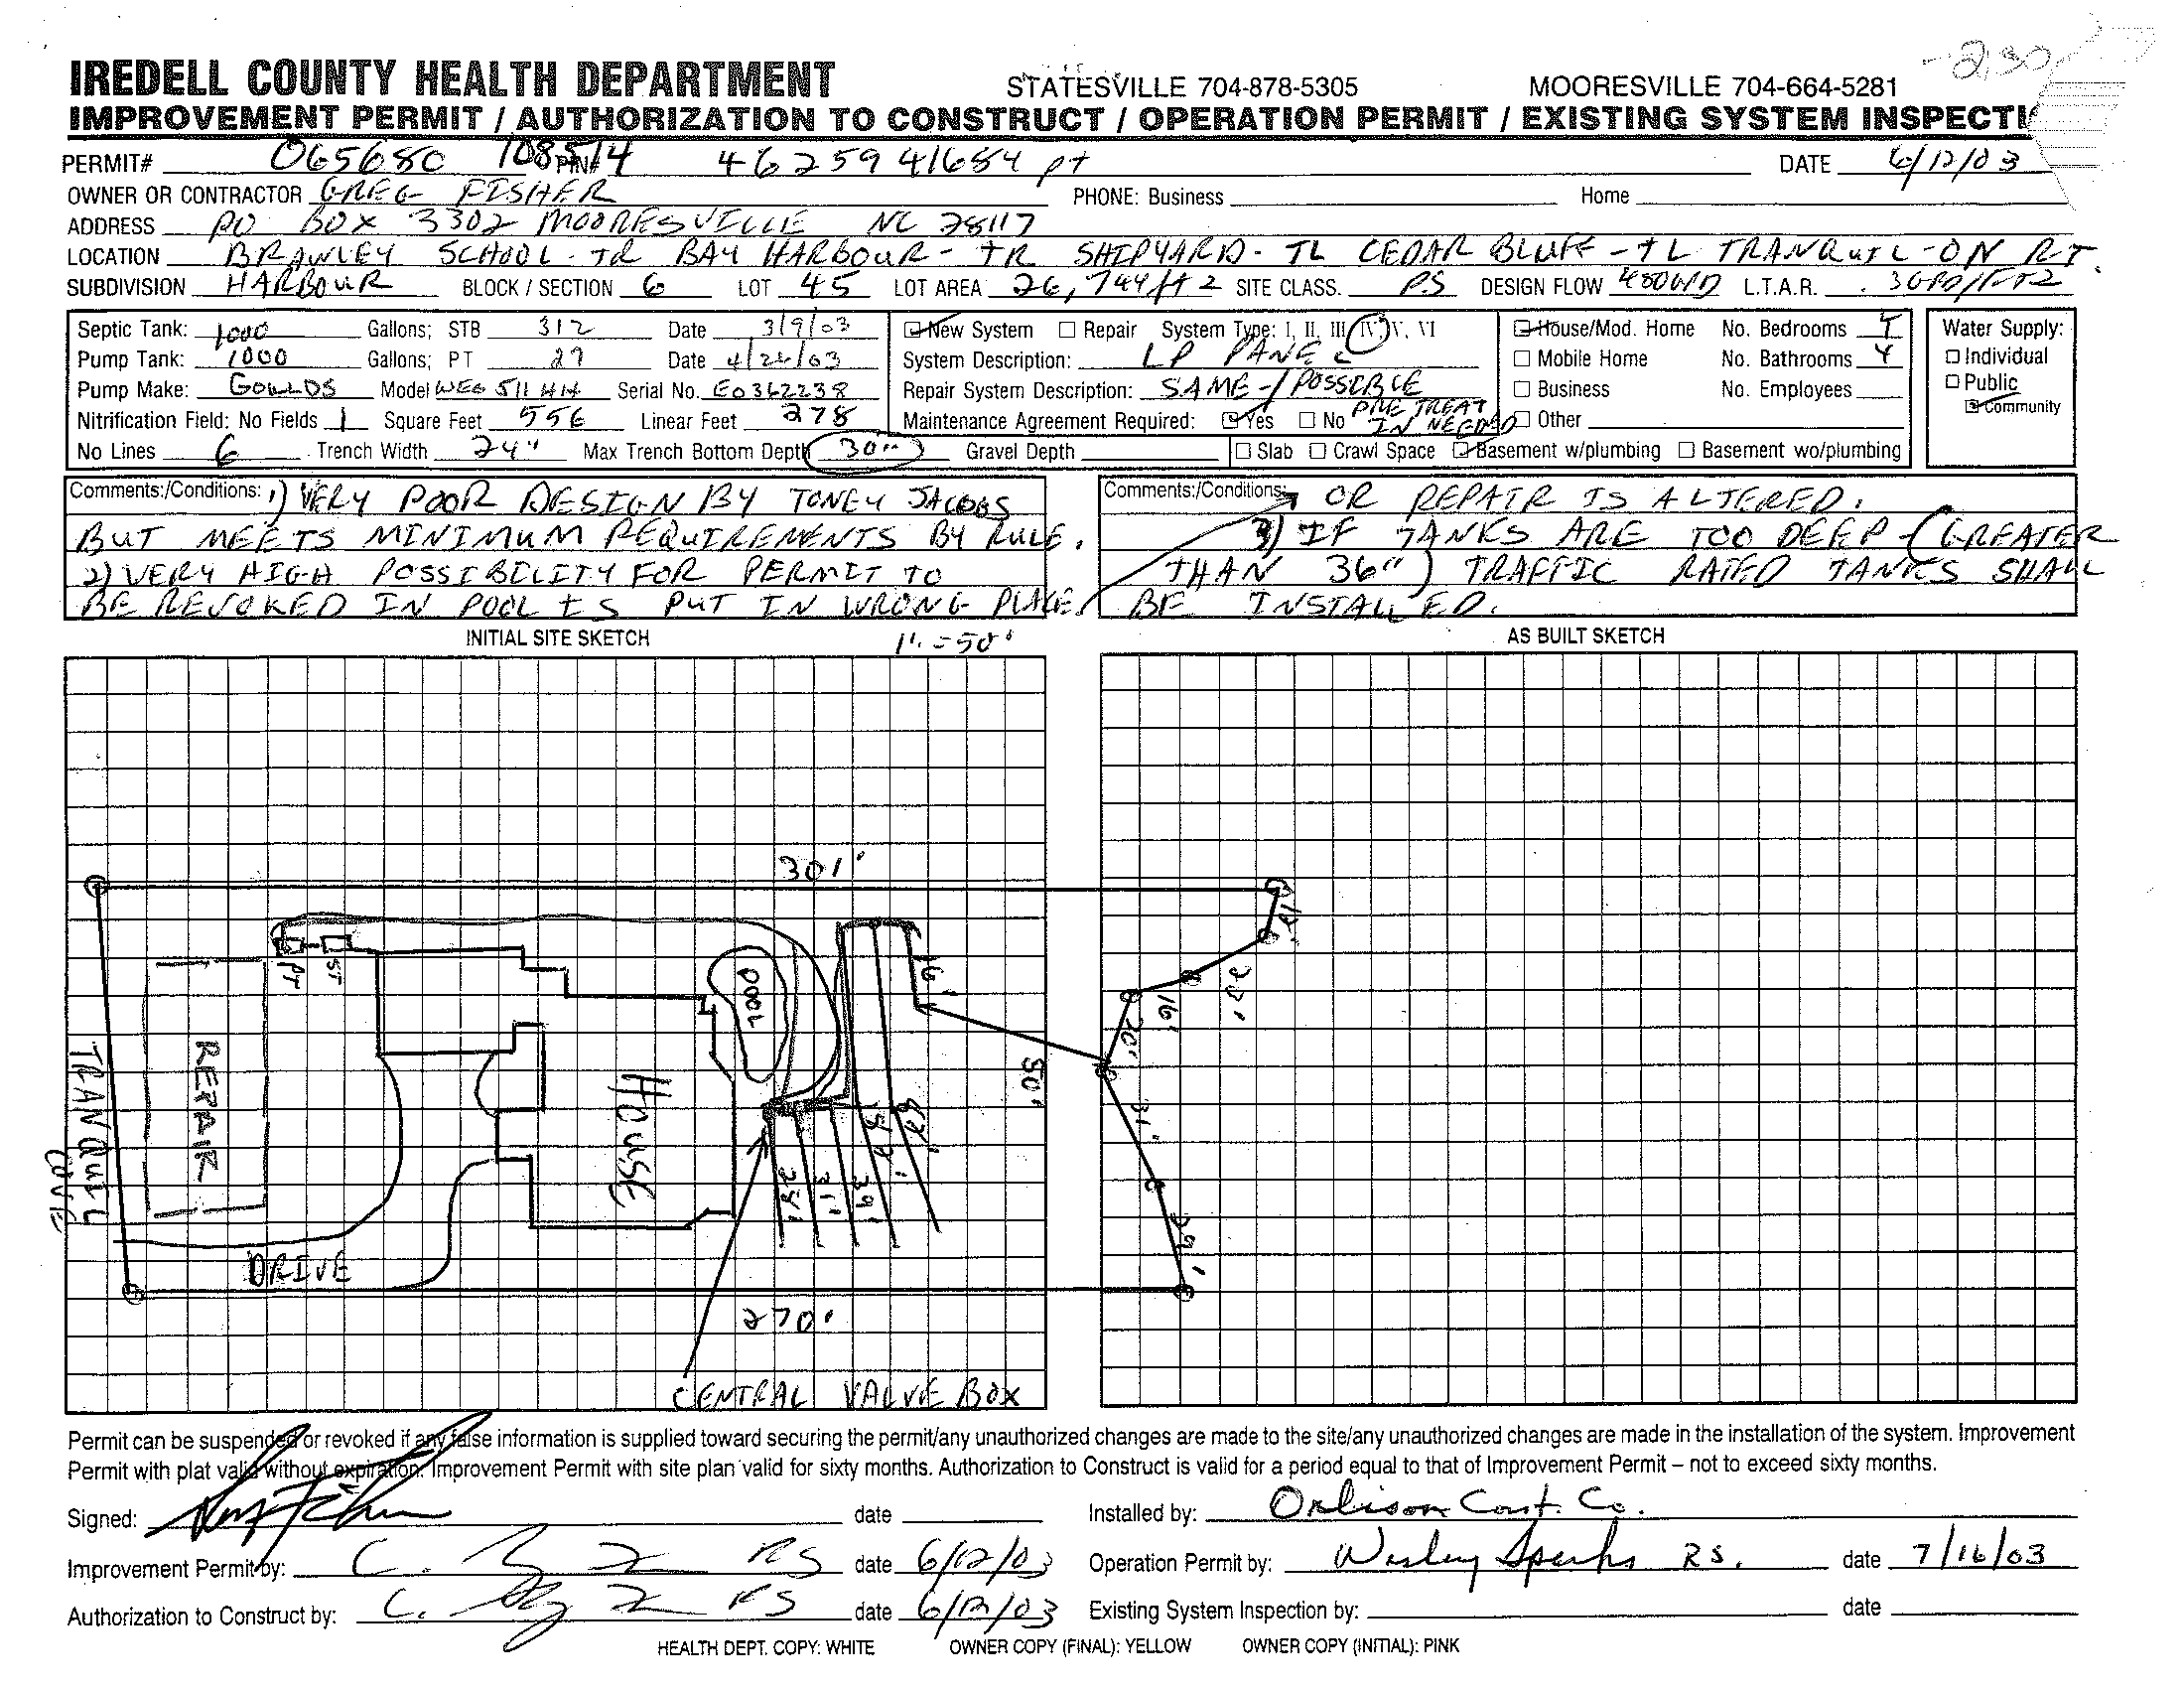 -2,30
IREDELL COUNTY HEALTH DEPARTMENT STATESVILLE 704-878-5305 MOORESVILLE 704-664-5281
IMPROVEMENT PERMIT / AUTHORIZATION TO CONSTRUCT / OPERATION PERMIT / EXISTING SYSTEM INSPECTI
PERMIT# 065680 108514 PIN# 4625941684 pt DATE 6/12/03
OWNER OR CONTRACTOR GREG FISHER PHONE: Business Home
ADDRESS PO BOX 3302 MOORESVILLE NC 28117
LOCATION BRAWLEY SCHOOL - TR BAY HARBOUR - TR SHIPYARD - TL CEDAR BLUFF - TL TRANQUIL - ON RT.
SUBDIVISION HARBOUR BLOCK / SECTION 6 LOT 45 LOT AREA 26,744 ft2 SITE CLASS. PS DESIGN FLOW 480GPD L.T.A.R. .3GPD/FT2
Septic Tank: 1000 Gallons; STB 312 Date 3/9/03 New System Repair System Type: I, II, III, IV, V, VI House/Mod. Home No. Bedrooms 4 Water Supply:
Pump Tank: 1000 Gallons; PT 27 Date 4/26/03 System Description: LP PANEL Mobile Home No. Bathrooms 4 Individual
Pump Make: GOULDS Model WE0511HH Serial No. E0362238 Repair System Description: SAME - / POSSIBLE Business No. Employees Public
Nitrification Field: No Fields 1 Square Feet 556 Linear Feet 278 Maintenance Agreement Required: Yes No PRE TREAT IN NEEDED Other Community
No Lines 6 Trench Width 24" Max Trench Bottom Depth 30" Gravel Depth Slab Crawl Space Basement w/plumbing Basement wo/plumbing
Comments:/Conditions: 1) VERY POOR DESIGN BY TONEY JACOBS
BUT MEETS MINIMUM REQUIREMENTS BY RULE.
2) VERY HIGH POSSIBILITY FOR PERMIT TO
BE REVOKED IN POOL IS PUT IN WRONG PLACE
Comments:/Conditions: OR REPAIR IS ALTERED.
3) IF TANKS ARE TOO DEEP (GREATER
THAN 36") TRAFFIC RATED TANKS SHALL
BE INSTALLED.
INITIAL SITE SKETCH 1" = 50' AS BUILT SKETCH
301'
12'
PT
ST
POOL
16'
20'
16'
20'
50'
TRANQUIL
COVE
REPAIR
HOUSE
31'
28'
31'
39'
29'
DRIVE
270'
CENTRAL VALVE BOX
Permit can be suspended or revoked if any false information is supplied toward securing the permit/any unauthorized changes are made to the site/any unauthorized changes are made in the installation of the system. Improvement
Permit with plat valid without expiration. Improvement Permit with site plan valid for sixty months. Authorization to Construct is valid for a period equal to that of Improvement Permit – not to exceed sixty months.
Signed: date Installed by: Orbison Const. Co.
Improvement Permit by: C. RS date 6/12/03 Operation Permit by: Wesley Sparks R.S. date 7/16/03
Authorization to Construct by: C. RS date 6/12/03 Existing System Inspection by: date
HEALTH DEPT. COPY: WHITE OWNER COPY (FINAL): YELLOW OWNER COPY (INITIAL): PINK